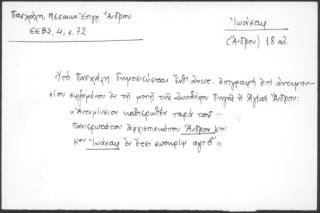 Πασχάλη, Μεσαιων. Ἐπιγρ. Ἄνδρου
ΕΕΒΣ, 4, σ. 72
Ἰωάσαφ
(Ἄνδρου) 18 αἰ.
Ὑπὸ Πασχάλη δημοσιεύεται ἐπιγραφὴ ἐπὶ ἀντιμην-
σίου ἐν τῇ μονῇ τῆς Ζωοδόχου Πηγῆς ἢ Ἁγίας Ἄνδρου:
«Ἀντιμίνσιον καθιερωθὲν παρὰ τοῦ
πανιερωτάτου ἀρχιεπισκόπου Ἄνδρου κου
κου Ἰωάσαφ ἐν ἔτει σωτηρίῳ